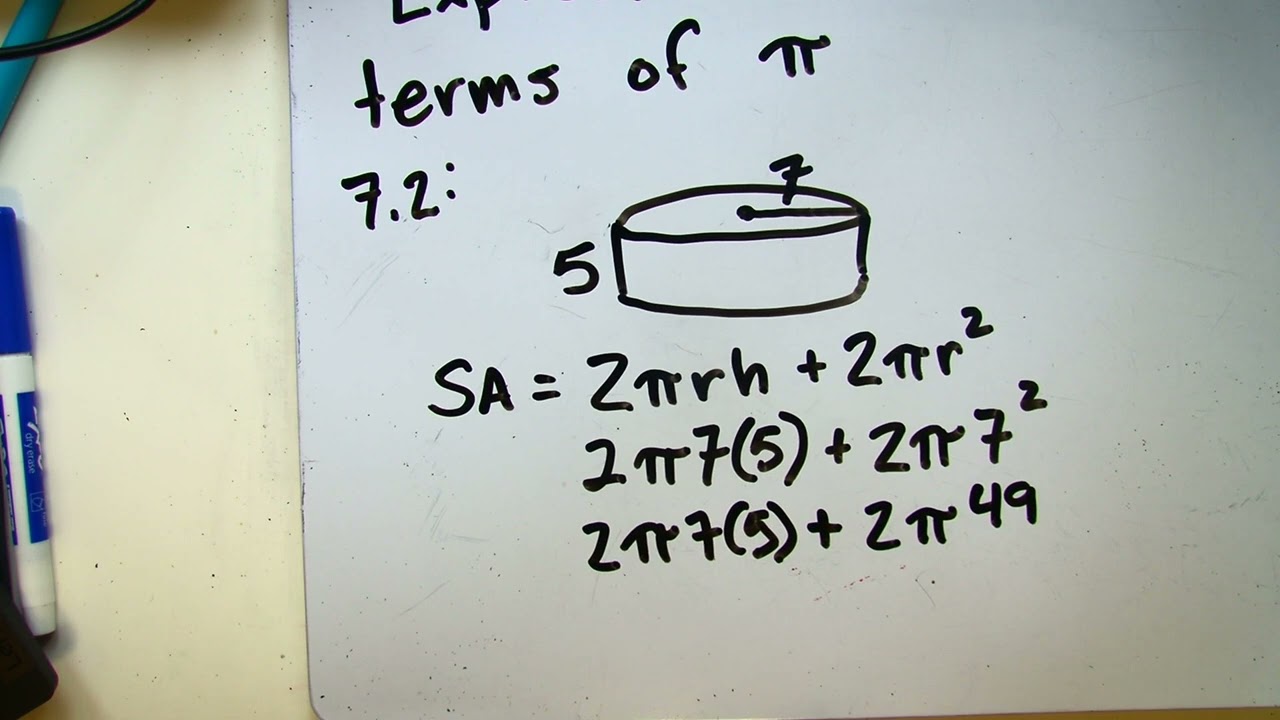 terms of π
7.2:
7
5
SA = 2πrh + 2πr²
2π7(5) + 2π7²
2π7(5) + 2π49
dry erase